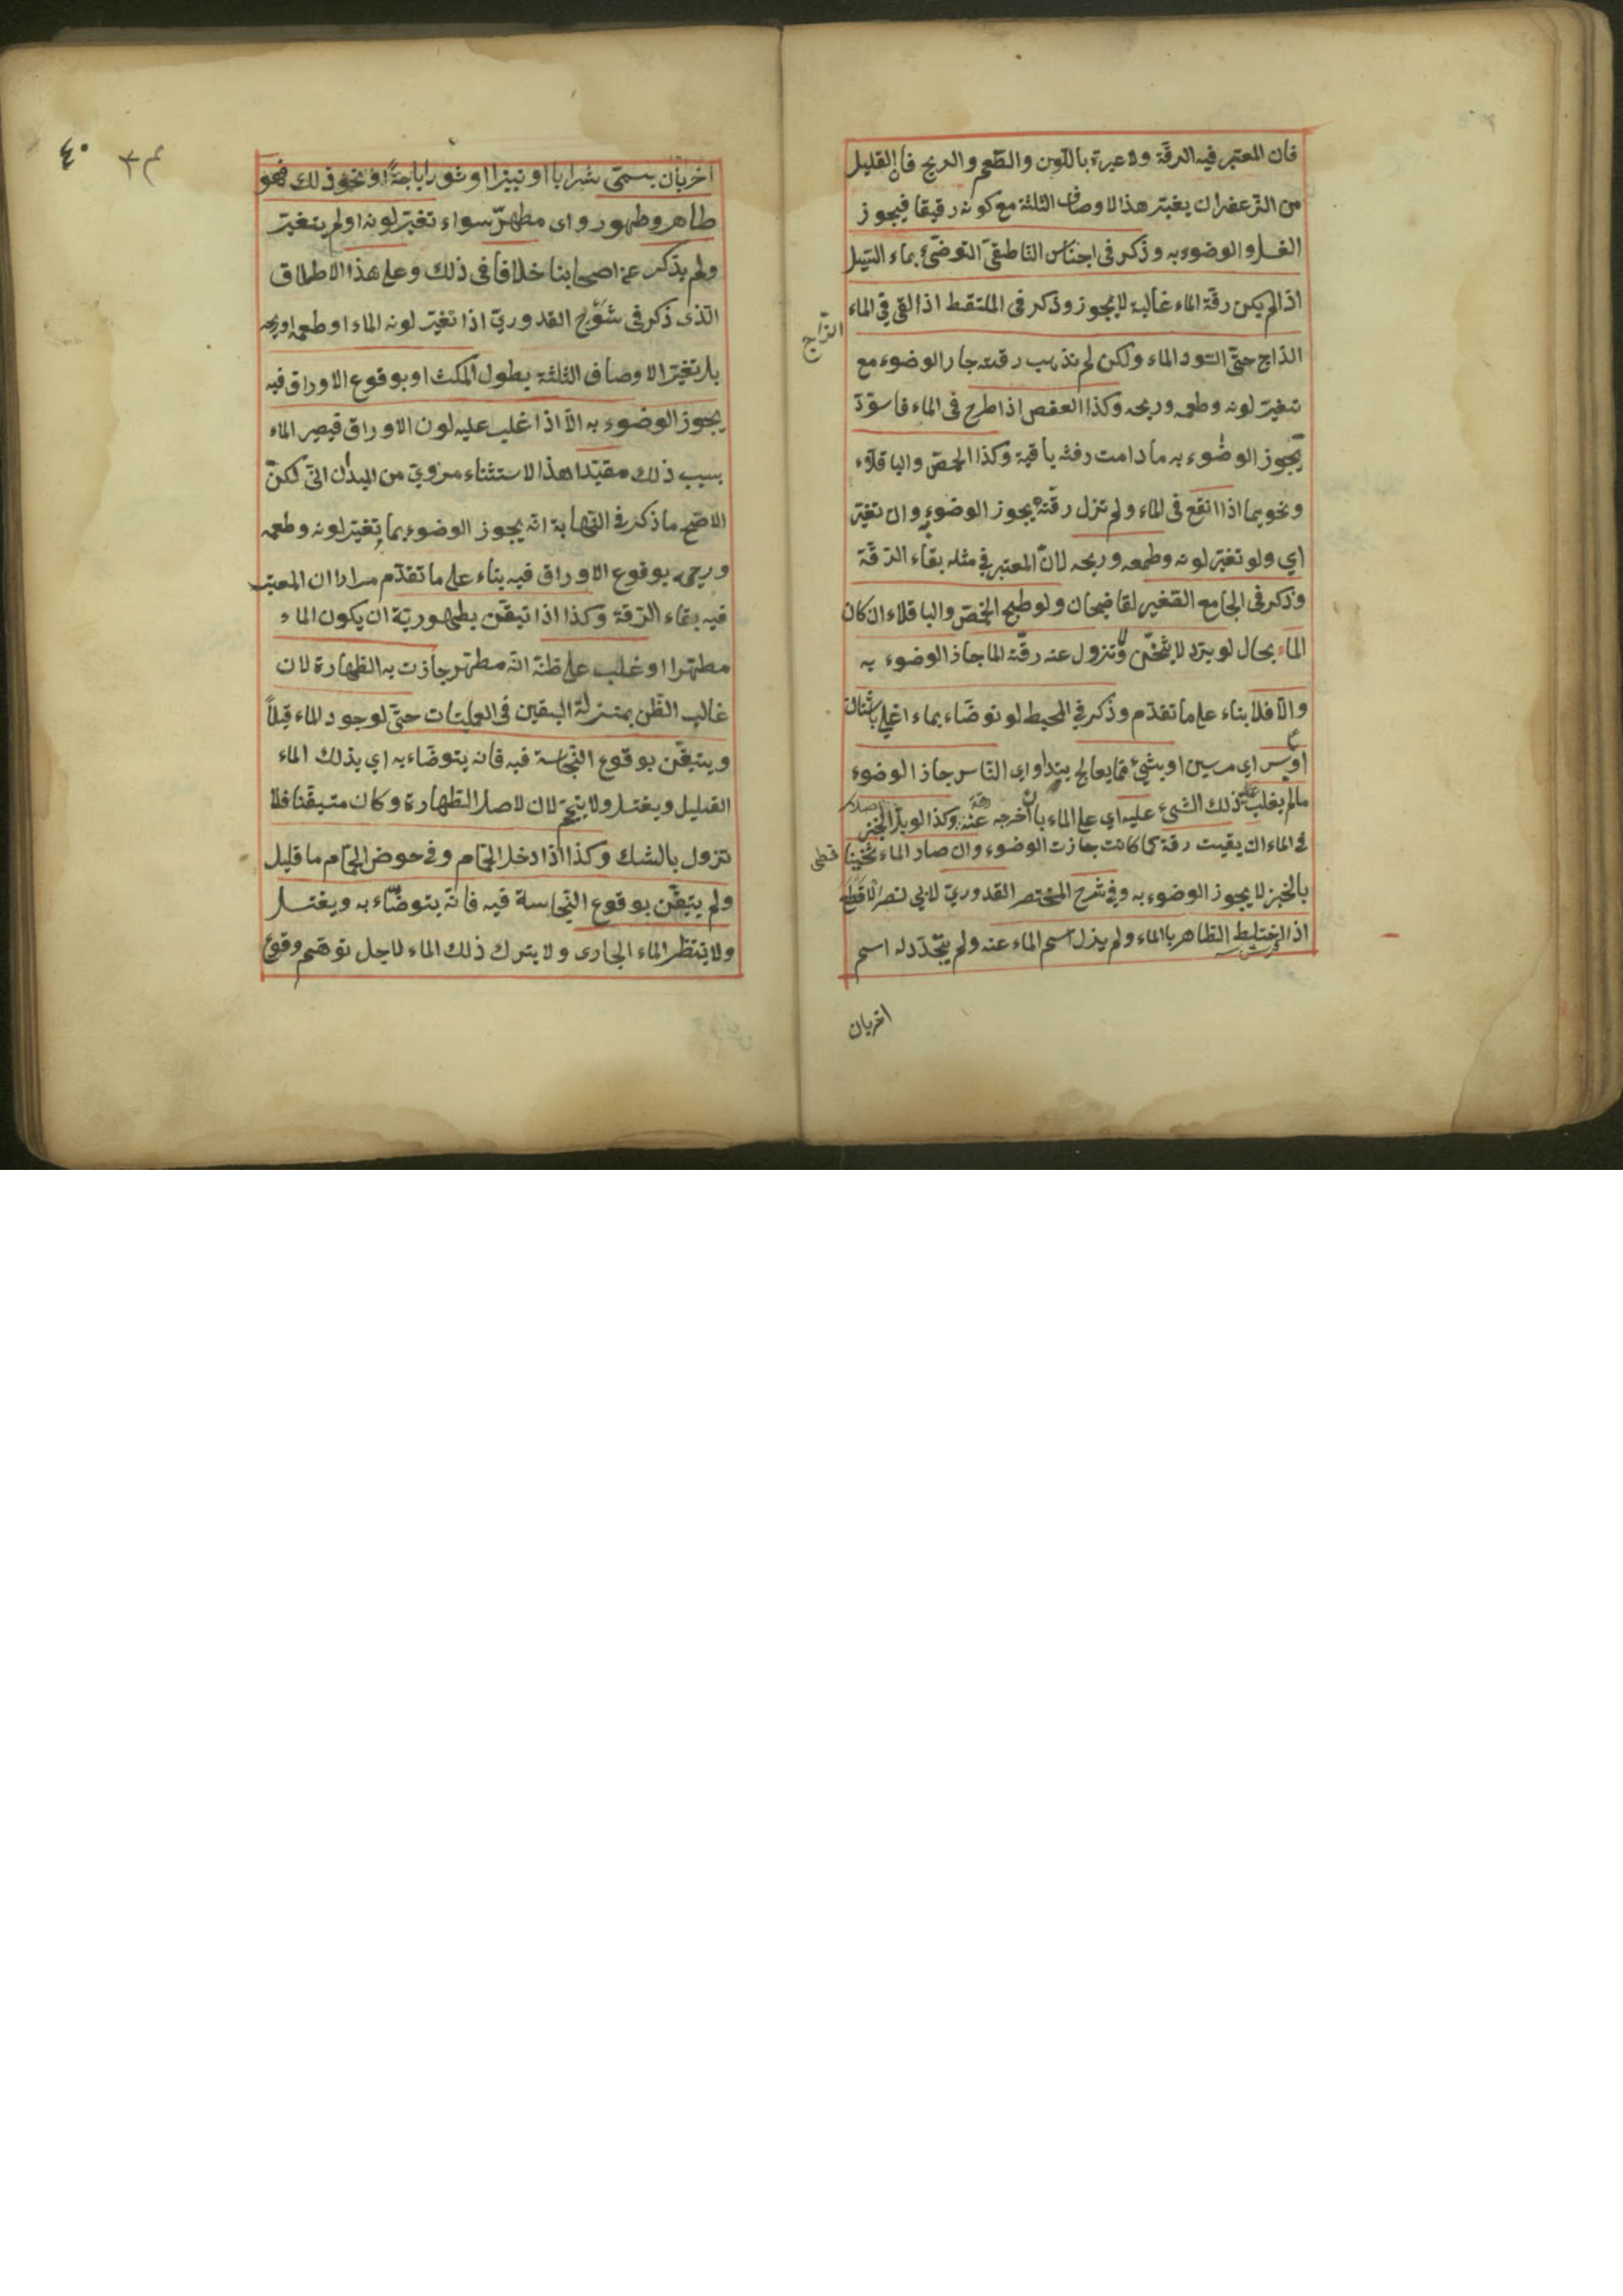 فان المعتبر فيه الرقة ولا عبرة باللون والطعم والريح فان القليل
من الزعفران يغير هذا الاوصاف الثلثة مع كونه رقيقا فيجوز
الغسل والوضوء به وذكر في اجناس الناطقي التوضئ بماء السيل
اذا لم يكن رقة الماء غالبة لا يجوز وذكر في الملتقط اذا القي في الماء
الزاج
الذاج حتى اسود الماء ولكن لم تذهب رقته جاز الوضوء مع
تغير لونه وطعمه وريحه وكذا العفص اذا طرح في الماء فاسود
يجوز الوضوء به ما دامت رقته باقية وكذا الحمص والباقلاء
ونحوهما اذا انقع في الماء ولم تزل رقته يجوز الوضوء به وان تغير
اي ولو تغير لونه وطعمه وريحه لان المعتبر في مثله بقاء الرقة
وذكر في الجامع الصغير لقاضيخان ولو طبخ الحمص والباقلاء ان كان
الماء بحال لو برد لا يثخن ولا تزول عنه رقة الما جاز الوضوء به
والا فلا بناء على ما تقدم وذكر في المحيط لو توضاء بماء اغلي باشنان
او باس اي مرسين او بشئ مما يعالج يتداوى الناس جاز الوضوء
مالم يغلب على ذلك الشئ عليه اي على الماء بان اخرجه عن رقته وكذا لو بل الخبز
في الماء ان بقيت رقة كما كانت جازت الوضوء وان صار الماء ثخينا
بالخبز لا يجوز الوضوء به وفي شرح المختصر القدوري لابي نصر الاقطع
اذا اختلط الطاهر بالماء ولم يزل اسم الماء عنه ولم يتجدد له اسم
اخر بان
٤٠
اخر بان يسمى شرابا او نبيذا او نحو ذلك فهو
طاهر وطهور واى مطهر سواء تغير لونه او لم يتغير
ولم يذكر عن اصحابنا خلافا في ذلك وعلى هذا الاطلاق
الذى ذكر في شرح القدوري اذا تغير لونه الماء او طعمه او ريحه
بل تغير الاوصاف الثلثة بطول المكث او بوقوع الاوراق فيه
يجوز الوضوء به الا اذا غلب عليه لون الاوراق فيصير الماء
بسبب ذلك مقيدا هذا الاستثناء مروي من الميداني لكن
الاصح ما ذكر في النهاية انه يجوز الوضوء بما تغير لونه وطعمه
وريحه بوقوع الاوراق فيه بناء على ما تقدم مرارا ان المعتبر
فيه بقاء الرقة وكذا اذا تيقن بطهورية ان يكون الماء
مطهرا او غلب على ظنه انه مطهر جازت به الطهارة لان
غالب الظن بمنزلة اليقين في العمليات حتى لو وجد الماء قليلا
ويتيقن بوقوع النجاسة فيه فانه يتوضاء به اي بذلك الماء
القليل ويغتسل ولا يتيمم لان لاصل الطهارة وكان متيقنا فلا
تزول بالشك وكذا اذا دخل الحمام وفي حوض الحمام ما قليل
ولم يتيقن بوقوع النجاسة فيه فانه يتوضاء به ويغتسل
ولا ينتظر الماء الجارى ولا يترك ذلك الماء لاجل توهم وقوع